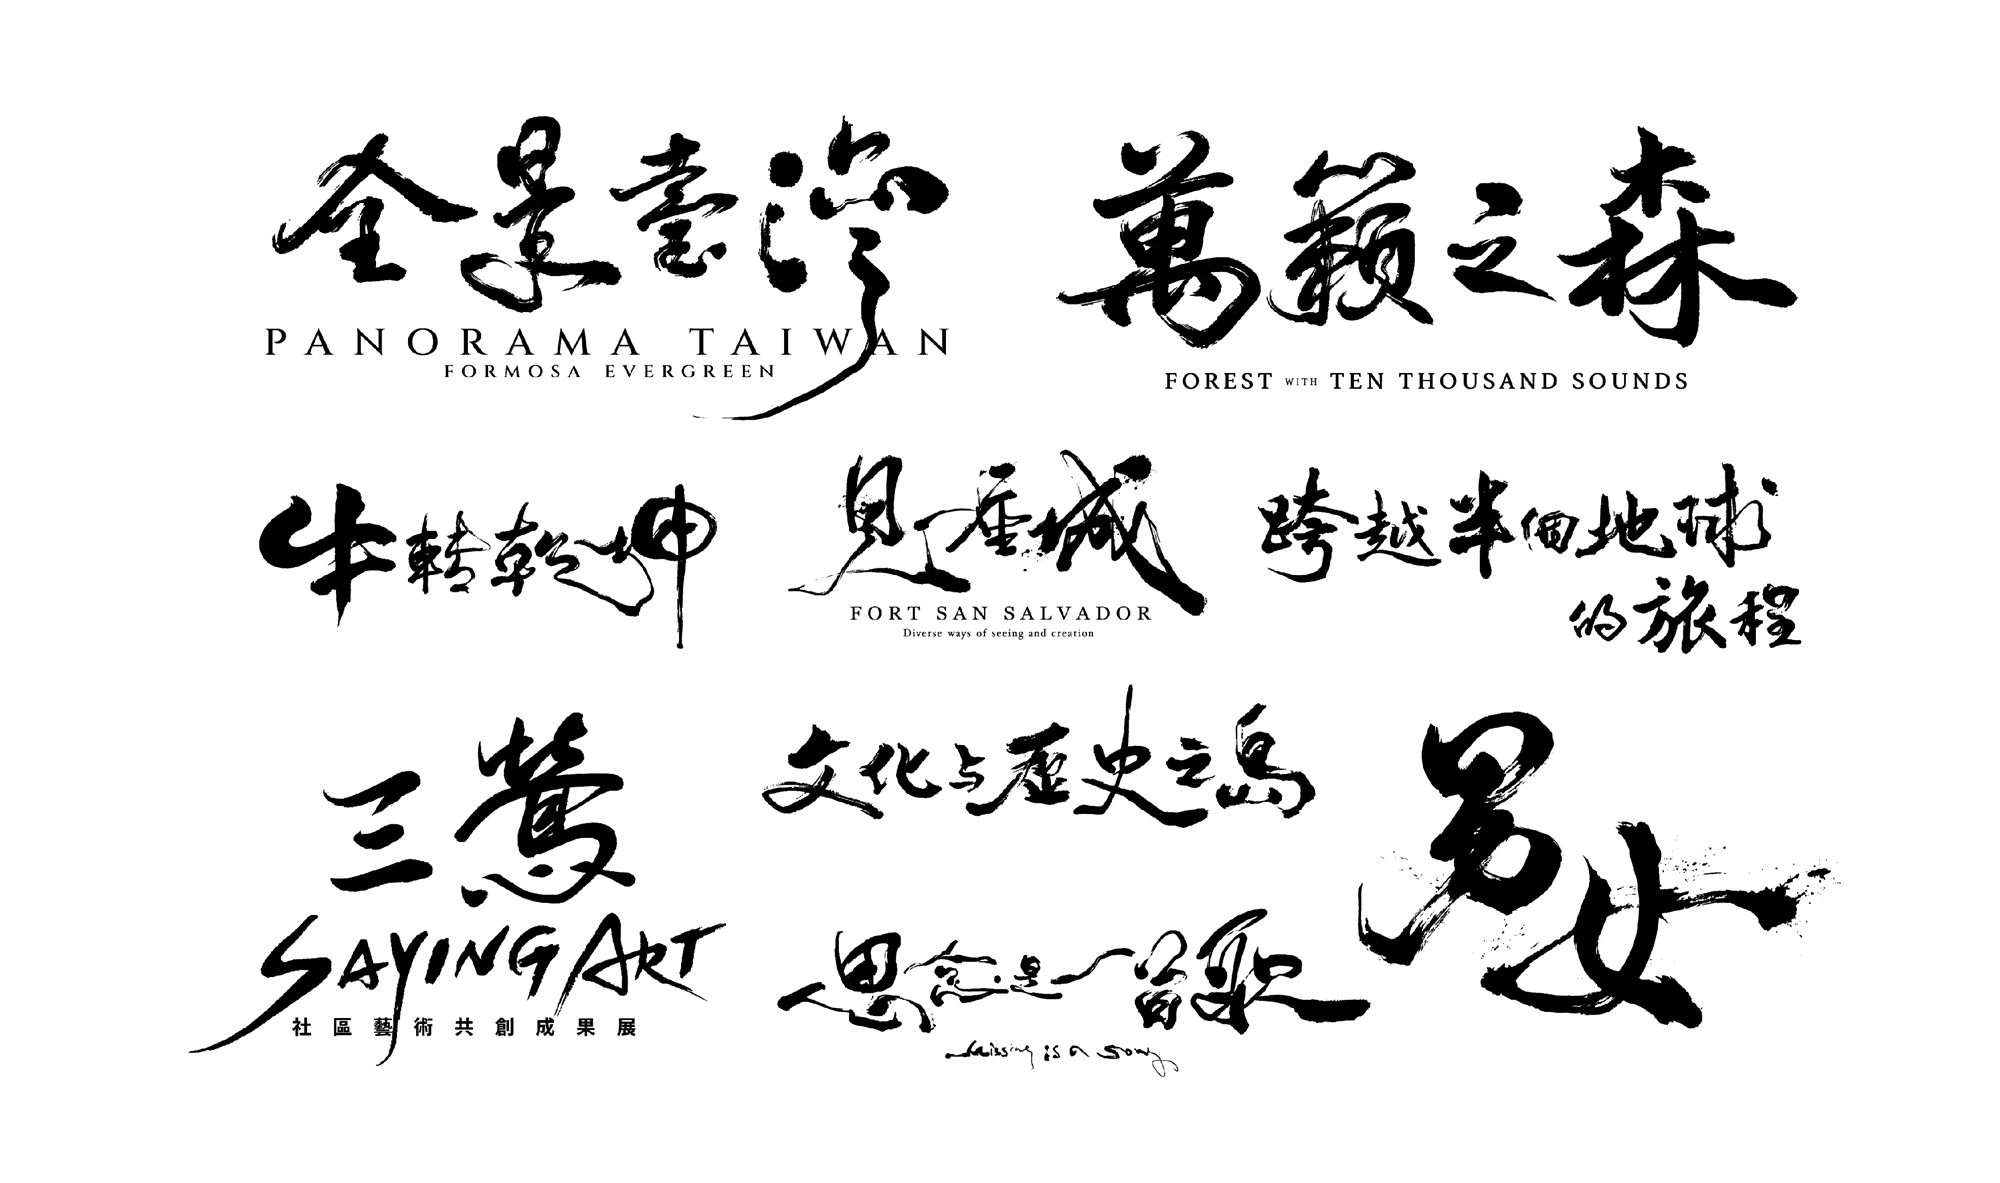 全景臺灣
PANORAMA TAIWAN
FORMOSA EVERGREEN
萬籟之森
FOREST WITH TEN THOUSAND SOUNDS
牛轉乾坤
見聖城
FORT SAN SALVADOR
Diverse ways of seeing and creation
跨越半個地球
的旅程
三鶯
SAYING ART
社區藝術共創成果展
文化与歷史之島
思念是一首歌
Missing is a song
男女